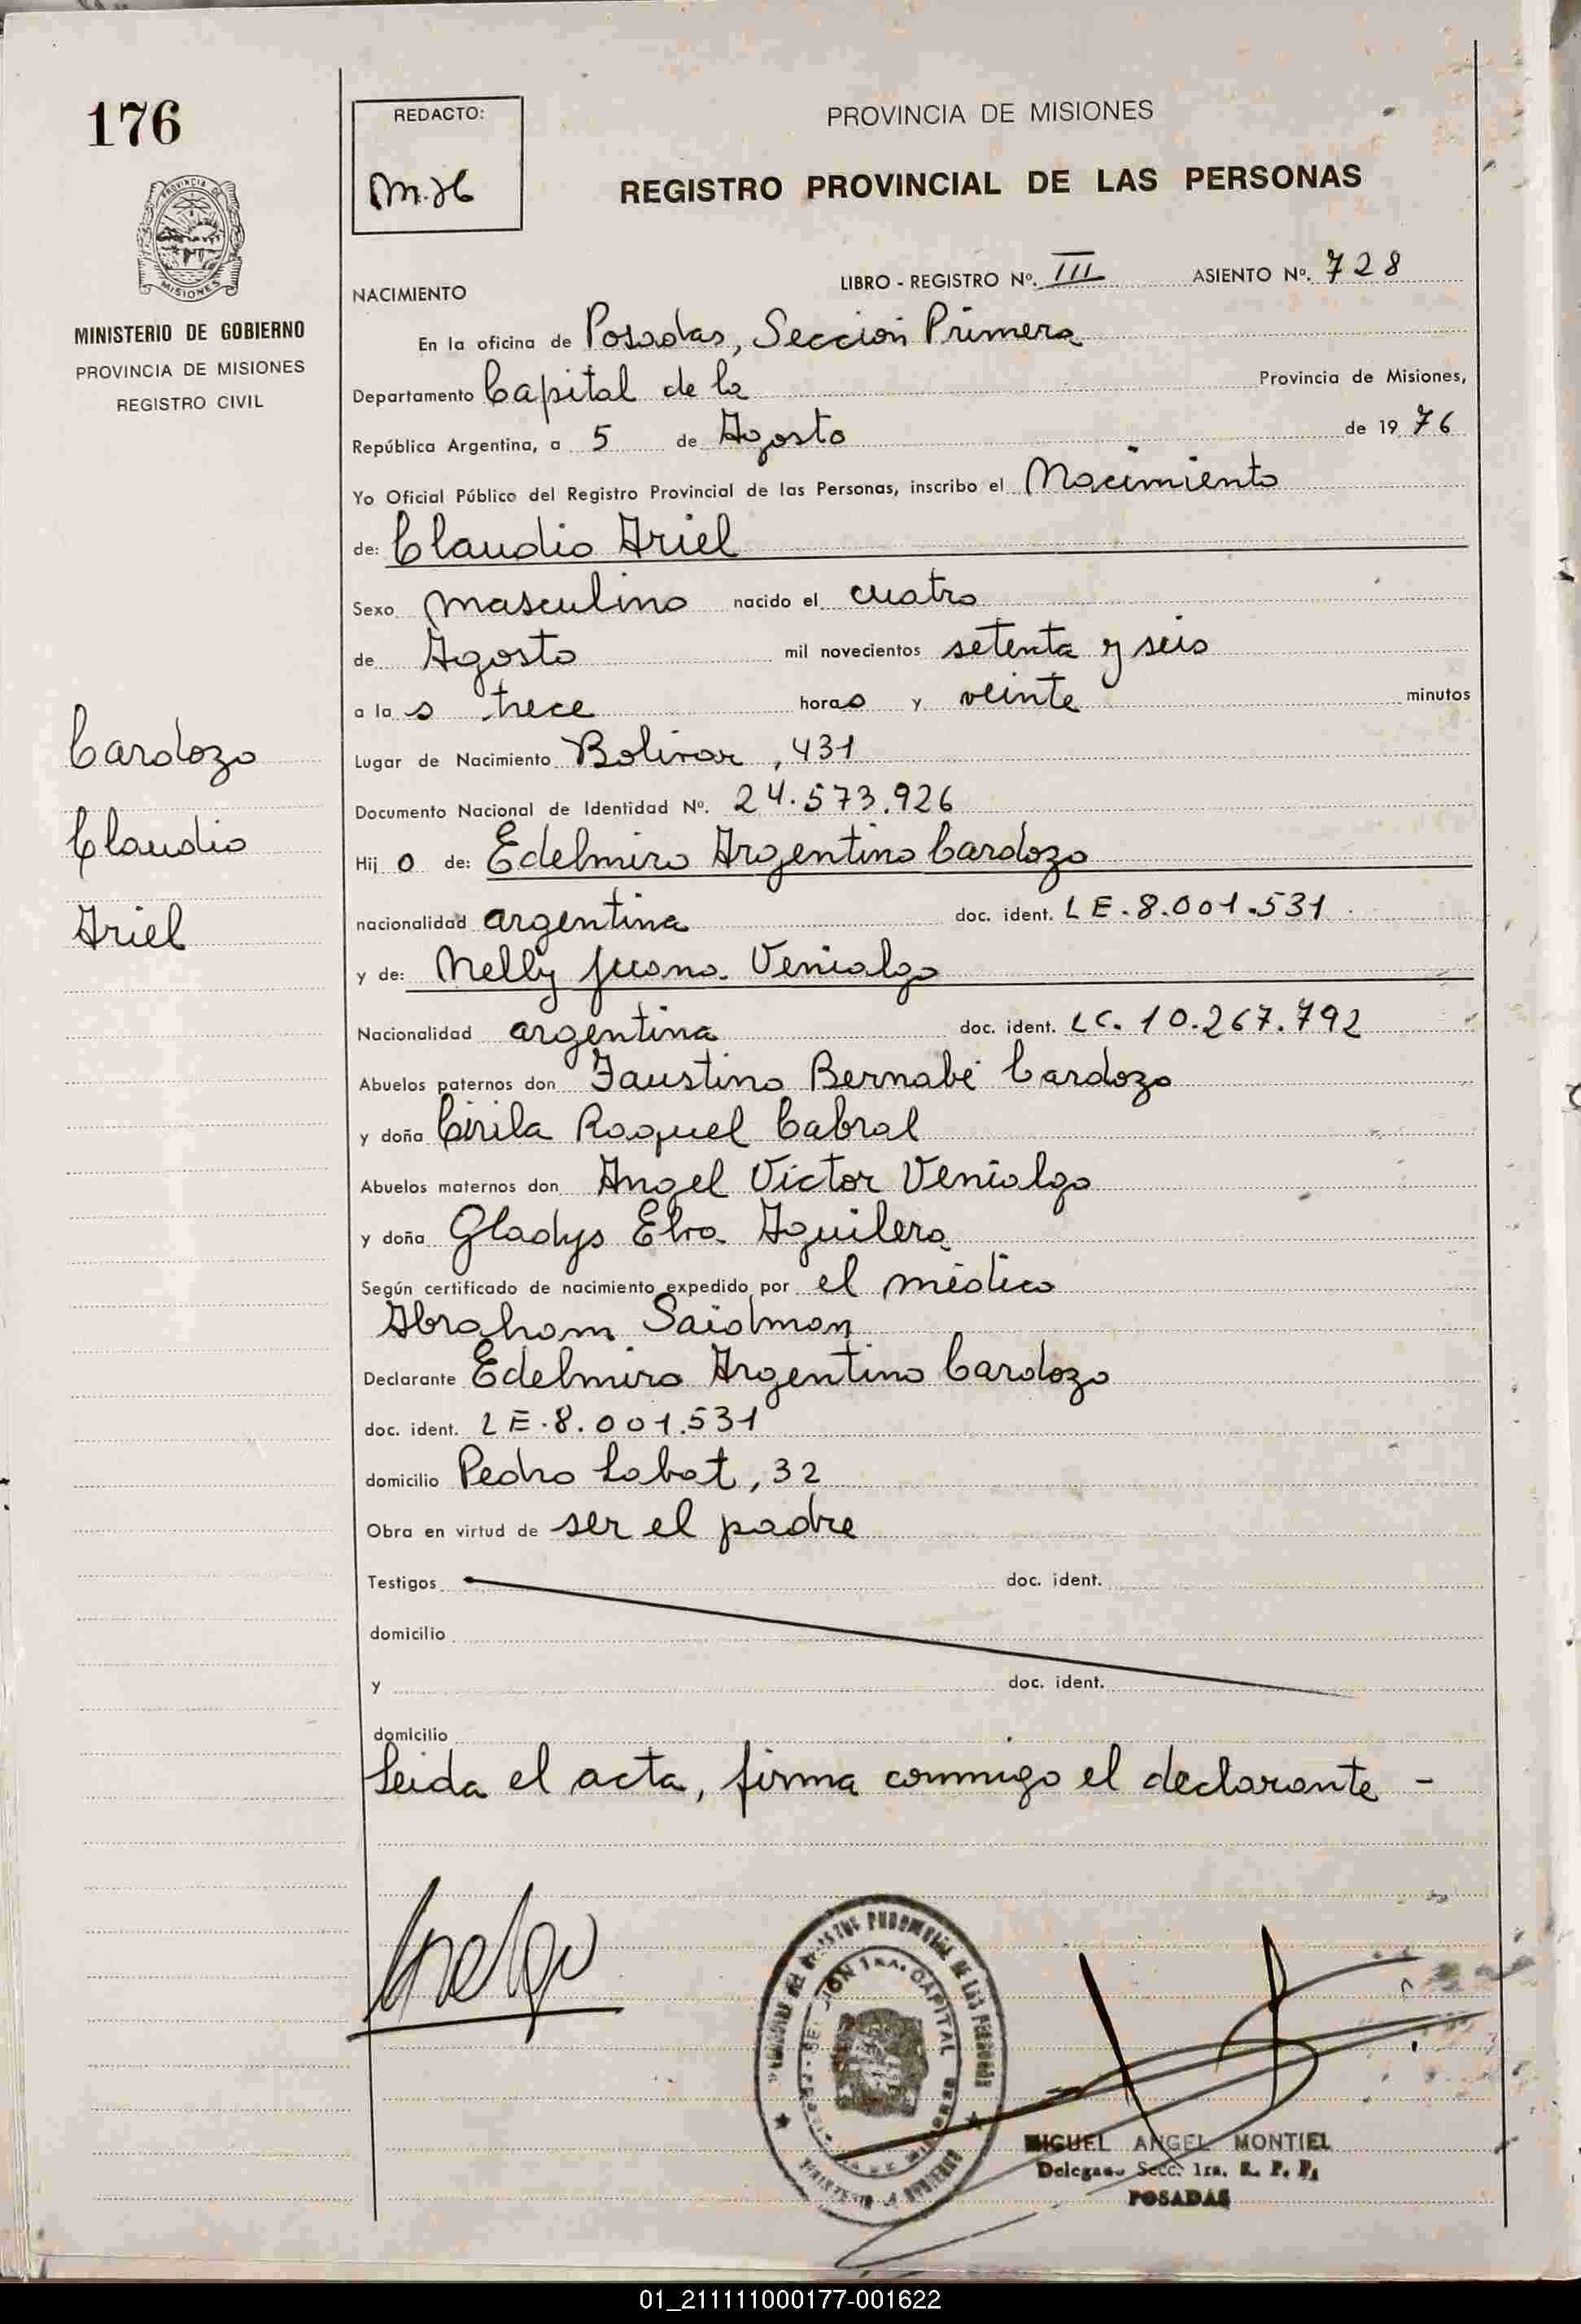 176
REDACTO:
M.H
PROVINCIA DE MISIONES
REGISTRO PROVINCIAL DE LAS PERSONAS
PROVINCIA DE
MISIONES
MINISTERIO DE GOBIERNO
PROVINCIA DE MISIONES
REGISTRO CIVIL
NACIMIENTO LIBRO - REGISTRO Nº. III ASIENTO Nº. 728
En la oficina de Posadas, Sección Primera
Departamento Capital de la Provincia de Misiones,
República Argentina, a 5 de Agosto de 1976
Yo Oficial Público del Registro Provincial de las Personas, inscribo el Nacimiento
de: Claudio Ariel
Sexo masculino nacido el cuatro
de Agosto mil novecientos setenta y seis
a la s trece horas y veinte minutos
Cardozo
Claudio
Ariel
Lugar de Nacimiento Bolivar, 431
Documento Nacional de Identidad Nº. 24.573.926
Hijo de: Edelmiro Argentino Cardozo
nacionalidad argentina doc. ident. LE.8.001.531
y de: Nelly Juana Venialgo
Nacionalidad argentina doc. ident. LC. 10.267.792
Abuelos paternos don Faustino Bernabé Cardozo
y doña Cirila Raquel Cabral
Abuelos maternos don Angel Victor Venialgo
y doña Gladys Elva Aguilera
Según certificado de nacimiento expedido por el médico
Abraham Saidman
Declarante Edelmiro Argentino Cardozo
doc. ident. LE.8.001.531
domicilio Pedro Labat, 32
Obra en virtud de ser el padre
Testigos doc. ident.
domicilio
y doc. ident.
domicilio
Leida el acta, firma conmigo el declarante -
MIGUEL ANGEL MONTIEL
Delegado Secc. 1ra. R. P. P.
POSADAS
01_211111000177-001622